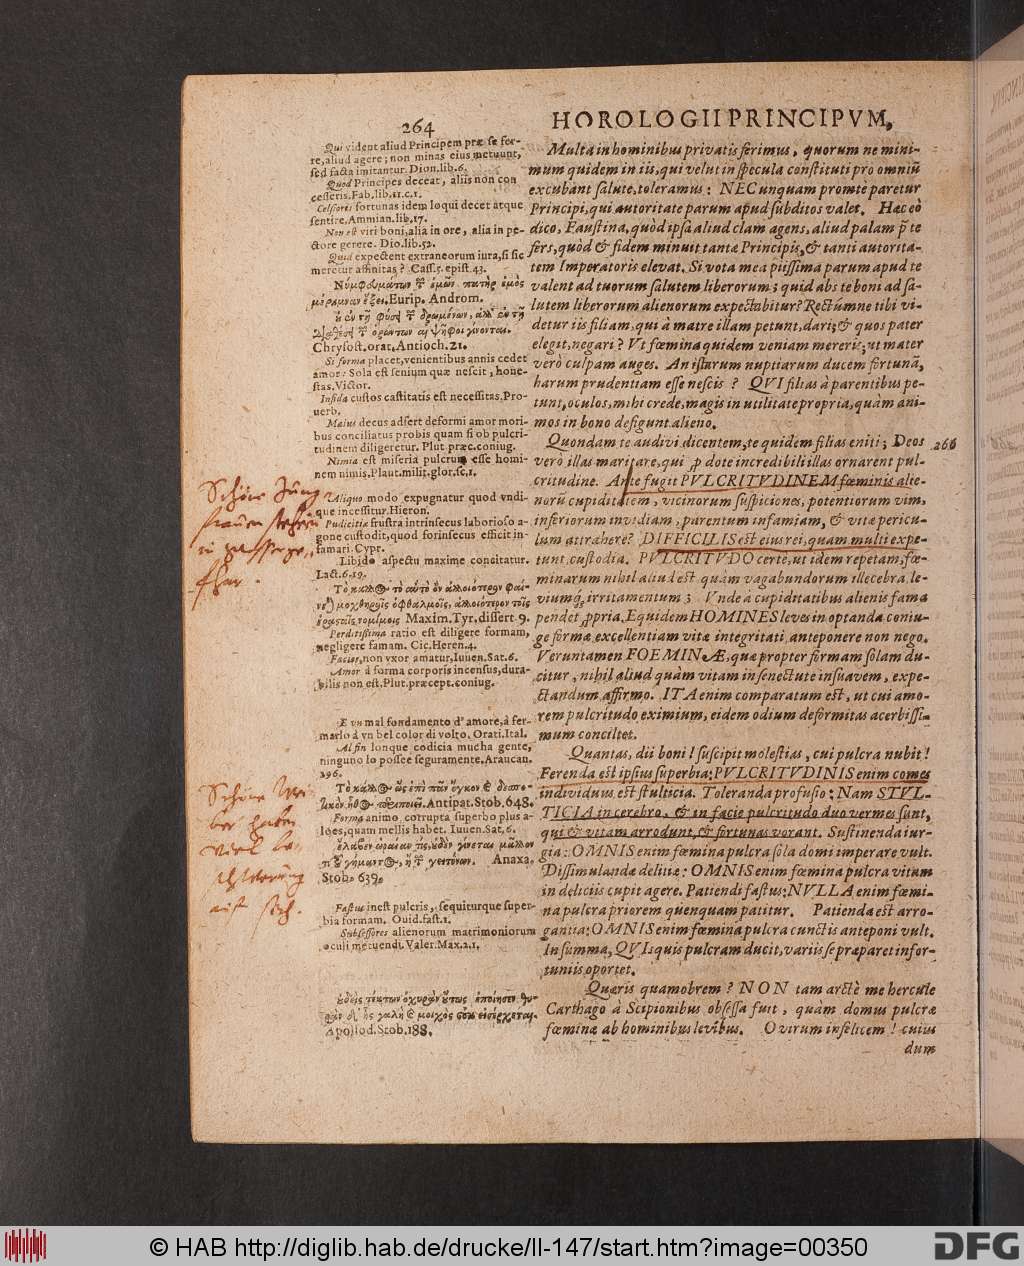 264
HOROLOGII PRINCIPVM,
Qui vident aliud Principem præ se fer-
re, aliud agere; non minas eius metuunt,
sed facta imitantur. Dion. lib. 6.
Quod Principes deceat, aliis non con
cesseris. Fab. lib. 11. c. 1.
Celsioris fortunas idem loqui decet atque
sentire. Ammian. lib. 17.
Non est viri boni, alia in ore, alia in pe-
ctore gerere. Dio. lib. 52.
Quid expectent extraneorum iura, si sic
meretur affinitas? Cass. 5. epist. 43.
Eurip. Androm.
Chrysost. orat. Antioch. 21.
Si forma placet, venientibus annis cedet
amor: Sola est senium quæ nescit, hone-
stas. Victor.
Infida custos castitatis est necessitas. Pro-
uerb.
Maius decus adfert deformi amor mori-
bus conciliatus probis quam si ob pulcri-
tudinem diligeretur. Plut. præc. coniug.
Nimia est miseria pulcrum esse homi-
nem nimis. Plaut. milit. glor. sc. 1.
Aliquo modo expugnatur quod vndi-
que incessitur. Hieron.
Pudicitia frustra intrinsecus laborioso a-
gone custodit, quod forinsecus efficit in-
famari. Cypr.
Libido aspectu maxime concitatur.
Lact. 6. 19.
Maxim. Tyr. dissert. 9.
Perditissima ratio est diligere formam,
negligere famam. Cic. Heren. 4.
Facies, non vxor amatur, Iuuen. Sat. 6.
Amor à forma corporis incensus, dura-
bilis non est. Plut. præcept. coniug.
E vn mal fondamento d'amore, à fer-
marlo à vn bel color di volto. Orati. Ital.
Al fin lonque codicia mucha gente,
ninguno lo possee seguramente. Araucan.
196.
Antipat. Stob. 648.
Forma animo corrupta superbo plus a-
loes, quam mellis habet. Iuuen. Sat. 6.
Anaxa.
Stob. 639.
Fastus inest pulcris, sequiturque super-
bia formam. Ouid. fast. 1.
Subsessores alienorum matrimoniorum
oculi metuendi. Valer. Max. 2. 1.
Apollod. Stob. 188.
Schöne
Schöne
Multa in hominibus privatis ferimus, quorum ne mini-
mum quidem in iis, qui velut in specula constituti pro omniũ
excubant salute, toleramus: NEC unquam promte paretur
Principi, qui autoritate parum apud subditos valet. Hæc eò
dico, Faustina, quòd ipsa aliud clam agens, aliud palam p̃ te
fers, quòd & fidem minuit tantæ Principis, & tanti autorita-
tem Imperatoris elevat. Si vota mea piissima parum apud te
valent ad tuorum salutem liberorum; quid abs te boni ad sa-
lutem liberorum alienorum expectabitur? Rectúmne tibi vi-
detur iis filiam, qui à matre illam petunt, dari; & quos pater
elegit, negari? Vt fœmina quidem veniam mereris; ut mater
verò culpam auges. An istarum nuptiarum ducem fortunã,
harum prudentiam esse nescis? QVI filias à parentibus pe-
tunt, oculos, mihi crede, magis in utilitate propria, quàm ani-
mos in bono defigunt alieno.
Quondam te audivi dicentem, te quidem filias eniti; Deos 266
verò illas maritare, qui ꝓ dote incredibili illas ornarent pul-
critudine. Ante fugit PVLCRITVDINEM fœminis alie-
norũ cupiditatem, vicinorum suspiciones, potentiorum vim,
inferiorum invidiam, parentum infamiam, & vitæ pericu-
lum attrahere? DIFFICILIS est eius rei, quam multi expe-
tunt, custodia. PVLCRITVDO certè, ut idem repetam, fœ-
minarum nihil aliud est quàm vagabundorum illecebra, le-
viumq́; irritamentum; Vnde à cupiditatibus alienis fama
pendet ꝓpria. Equidem HOMINES leves in optanda coniu-
ge formæ excellentiam vitæ integritati anteponere non nego.
Veruntamen FOEMINÆ, quæ propter formam solam du-
citur, nihil aliud quàm vitam in senectute insuavem, expe-
ctandum affirmo. ITA enim comparatum est, ut cui amo-
rem pulcritudo eximium, eidem odium deformitas acerbissi-
mum conciliet.
Quantas, dii boni! suscipit molestias, cui pulcra nubit!
Ferenda est ipsius superbia: PVLCRITVDINIS enim comes
individuus est stultitia. Toleranda profusio: Nam STVL-
TICIA in cerebro, & in facie pulcritudo duo vermes sunt,
qui & vitam arrodunt, & fortunas vorant. Sustinenda iur-
gia: OMNIS enim fœmina pulcra sola domi imperare vult.
Dissimulandæ delitiæ: OMNIS enim fœmina pulcra vitam
in deliciis cupit agere. Patiendi fastus: NVLLA enim fœmi-
na pulcra priorem quenquam patitur. Patienda est arro-
gantia: OMNIS enim fœmina pulcra cunctis anteponi vult.
In summa, QVIsquis pulcram ducit, variis se præparet infor-
tuniis oportet.
Quæris quamobrem? NON tam arctè me hercule
Carthago à Scipionibus obsessa fuit, quàm domus pulcræ
fœminæ ab hominibus levibus. O virum infelicem! cuius
dum
© HAB http://diglib.hab.de/drucke/ll-147/start.htm?image=00350
DFG